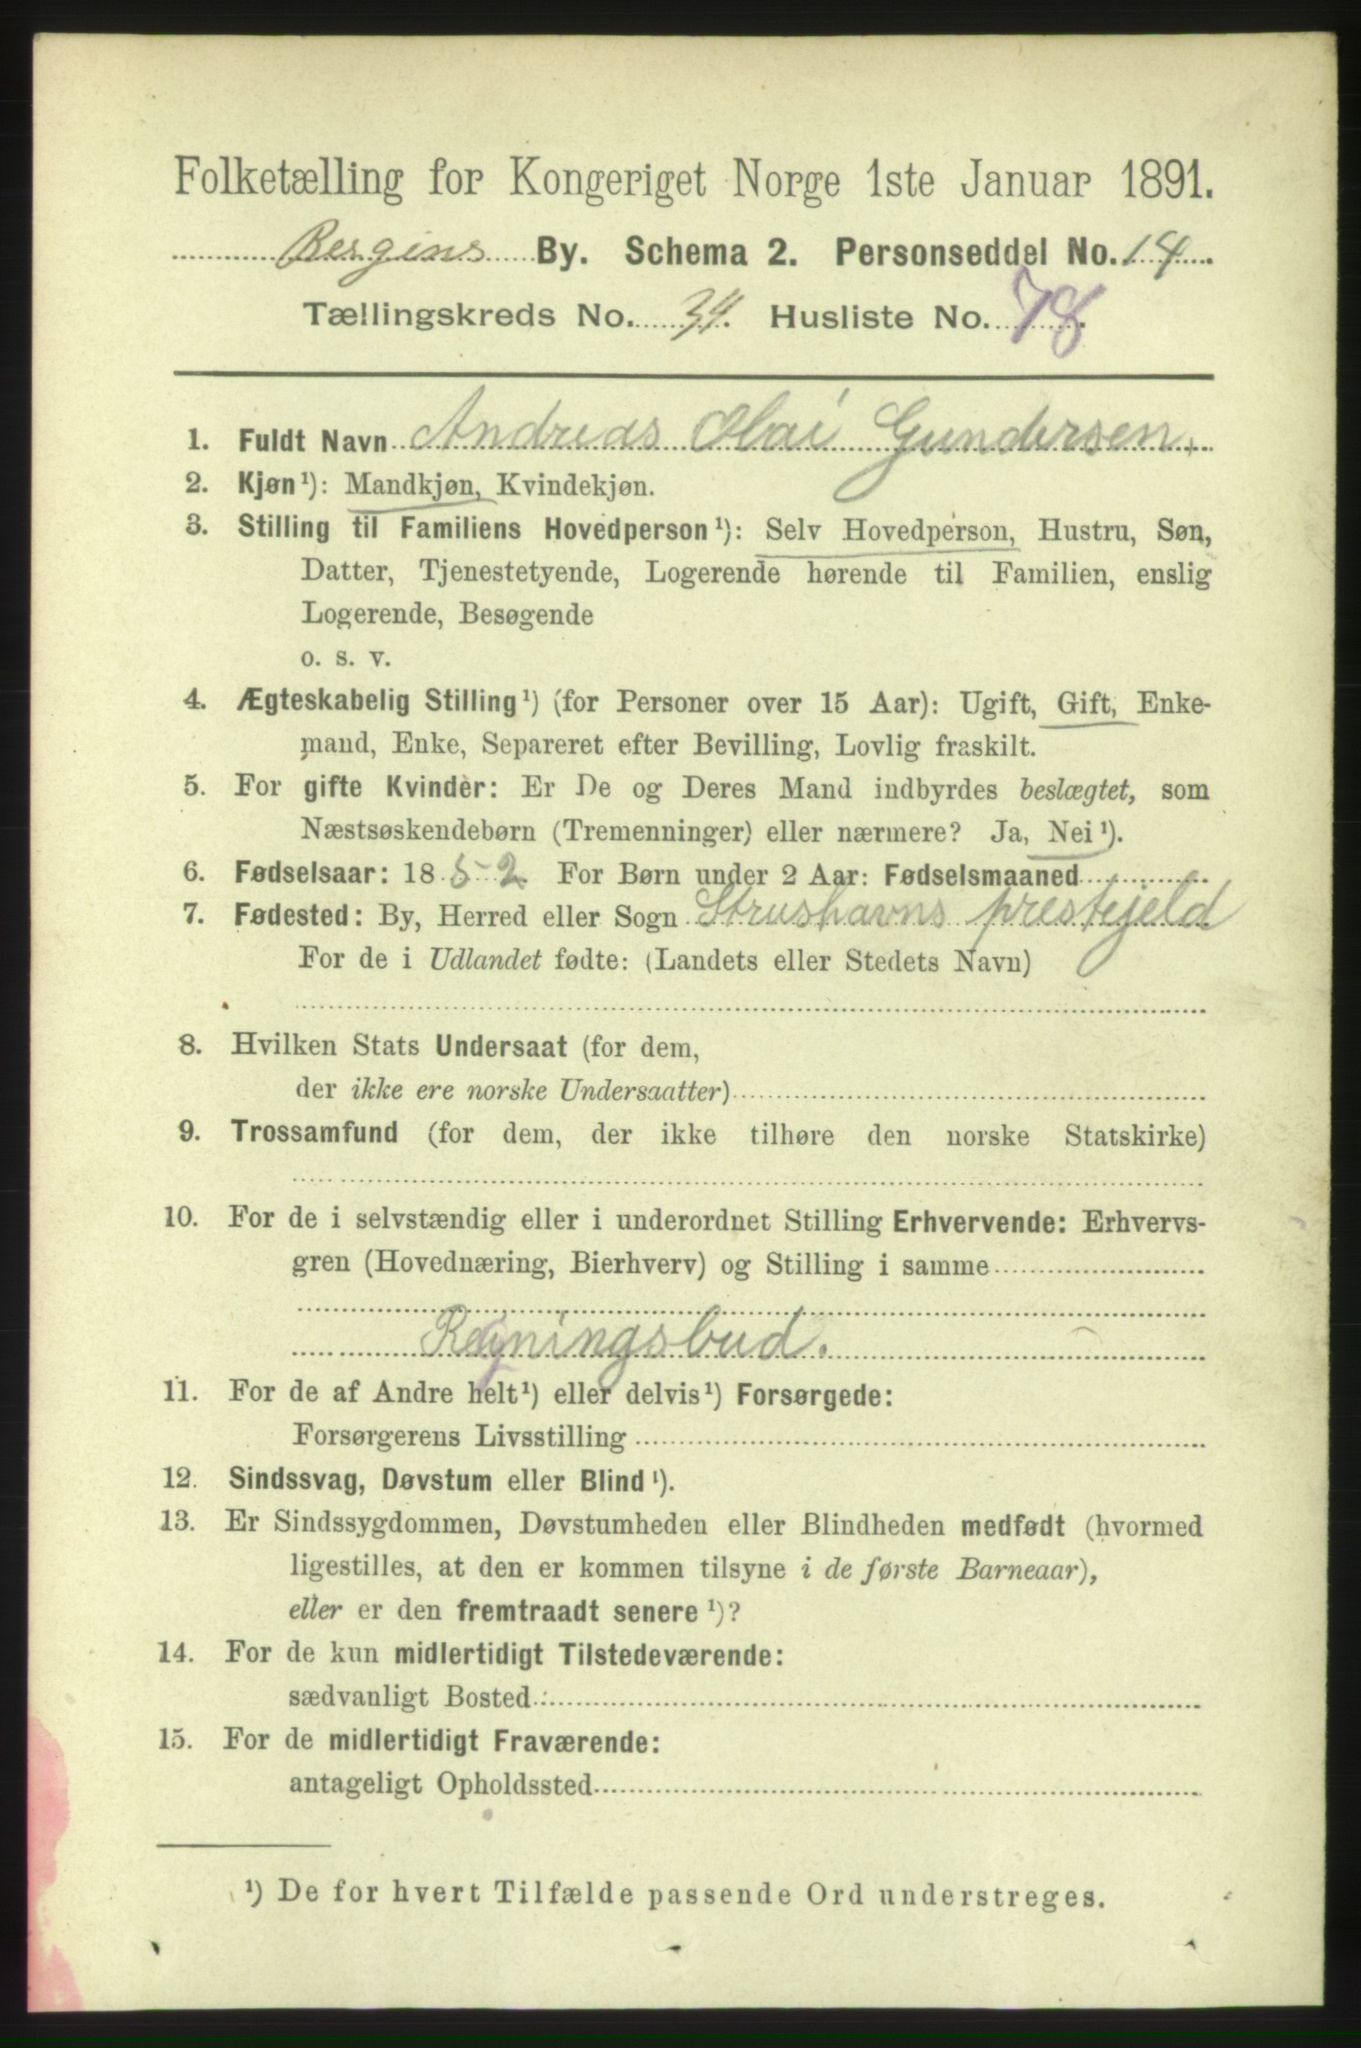 Folketælling for Kongeriget Norge 1ste Januar 1891.
Bergens By. Schema 2. Personseddel No. 14
Tællingskreds No. 34. Husliste No. 78
1. Fuldt Navn Andreas Olai Gundersen,
2. Kjøn¹): Mandkjøn, Kvindekjøn.
3. Stilling til Familiens Hovedperson¹): Selv Hovedperson, Hustru, Søn,
Datter, Tjenestetyende, Logerende hørende til Familien, enslig
Logerende, Besøgende
o. s. v.
4. Ægteskabelig Stilling¹) (for Personer over 15 Aar): Ugift, Gift, Enke-
mand, Enke, Separeret efter Bevilling, Lovlig fraskilt.
5. For gifte Kvinder: Er De og Deres Mand indbyrdes beslægtet, som
Næstsøskendebørn (Tremenninger) eller nærmere? Ja, Nei¹).
6. Fødselsaar: 1852 For Børn under 2 Aar: Fødselsmaaned
7. Fødested: By, Herred eller Sogn Strushavns prestejeld
For de i Udlandet fødte: (Landets eller Stedets Navn)
8. Hvilken Stats Undersaat (for dem,
der ikke ere norske Undersaatter)
9. Trossamfund (for dem, der ikke tilhøre den norske Statskirke)
10. For de i selvstændig eller i underordnet Stilling Erhvervende: Erhvervs-
gren (Hovednæring, Bierhverv) og Stilling i samme
Regningsbud.
11. For de af Andre helt¹) eller delvis¹) Forsørgede:
Forsørgerens Livsstilling
12. Sindssvag, Døvstum eller Blind¹).
13. Er Sindssygdommen, Døvstumheden eller Blindheden medfødt (hvormed
ligestilles, at den er kommen tilsyne i de første Barneaar),
eller er den fremtraadt senere¹)?
14. For de kun midlertidigt Tilstedeværende:
sædvanligt Bosted
15. For de midlertidigt Fraværende:
antageligt Opholdssted
¹) De for hvert Tilfælde passende Ord understreges.